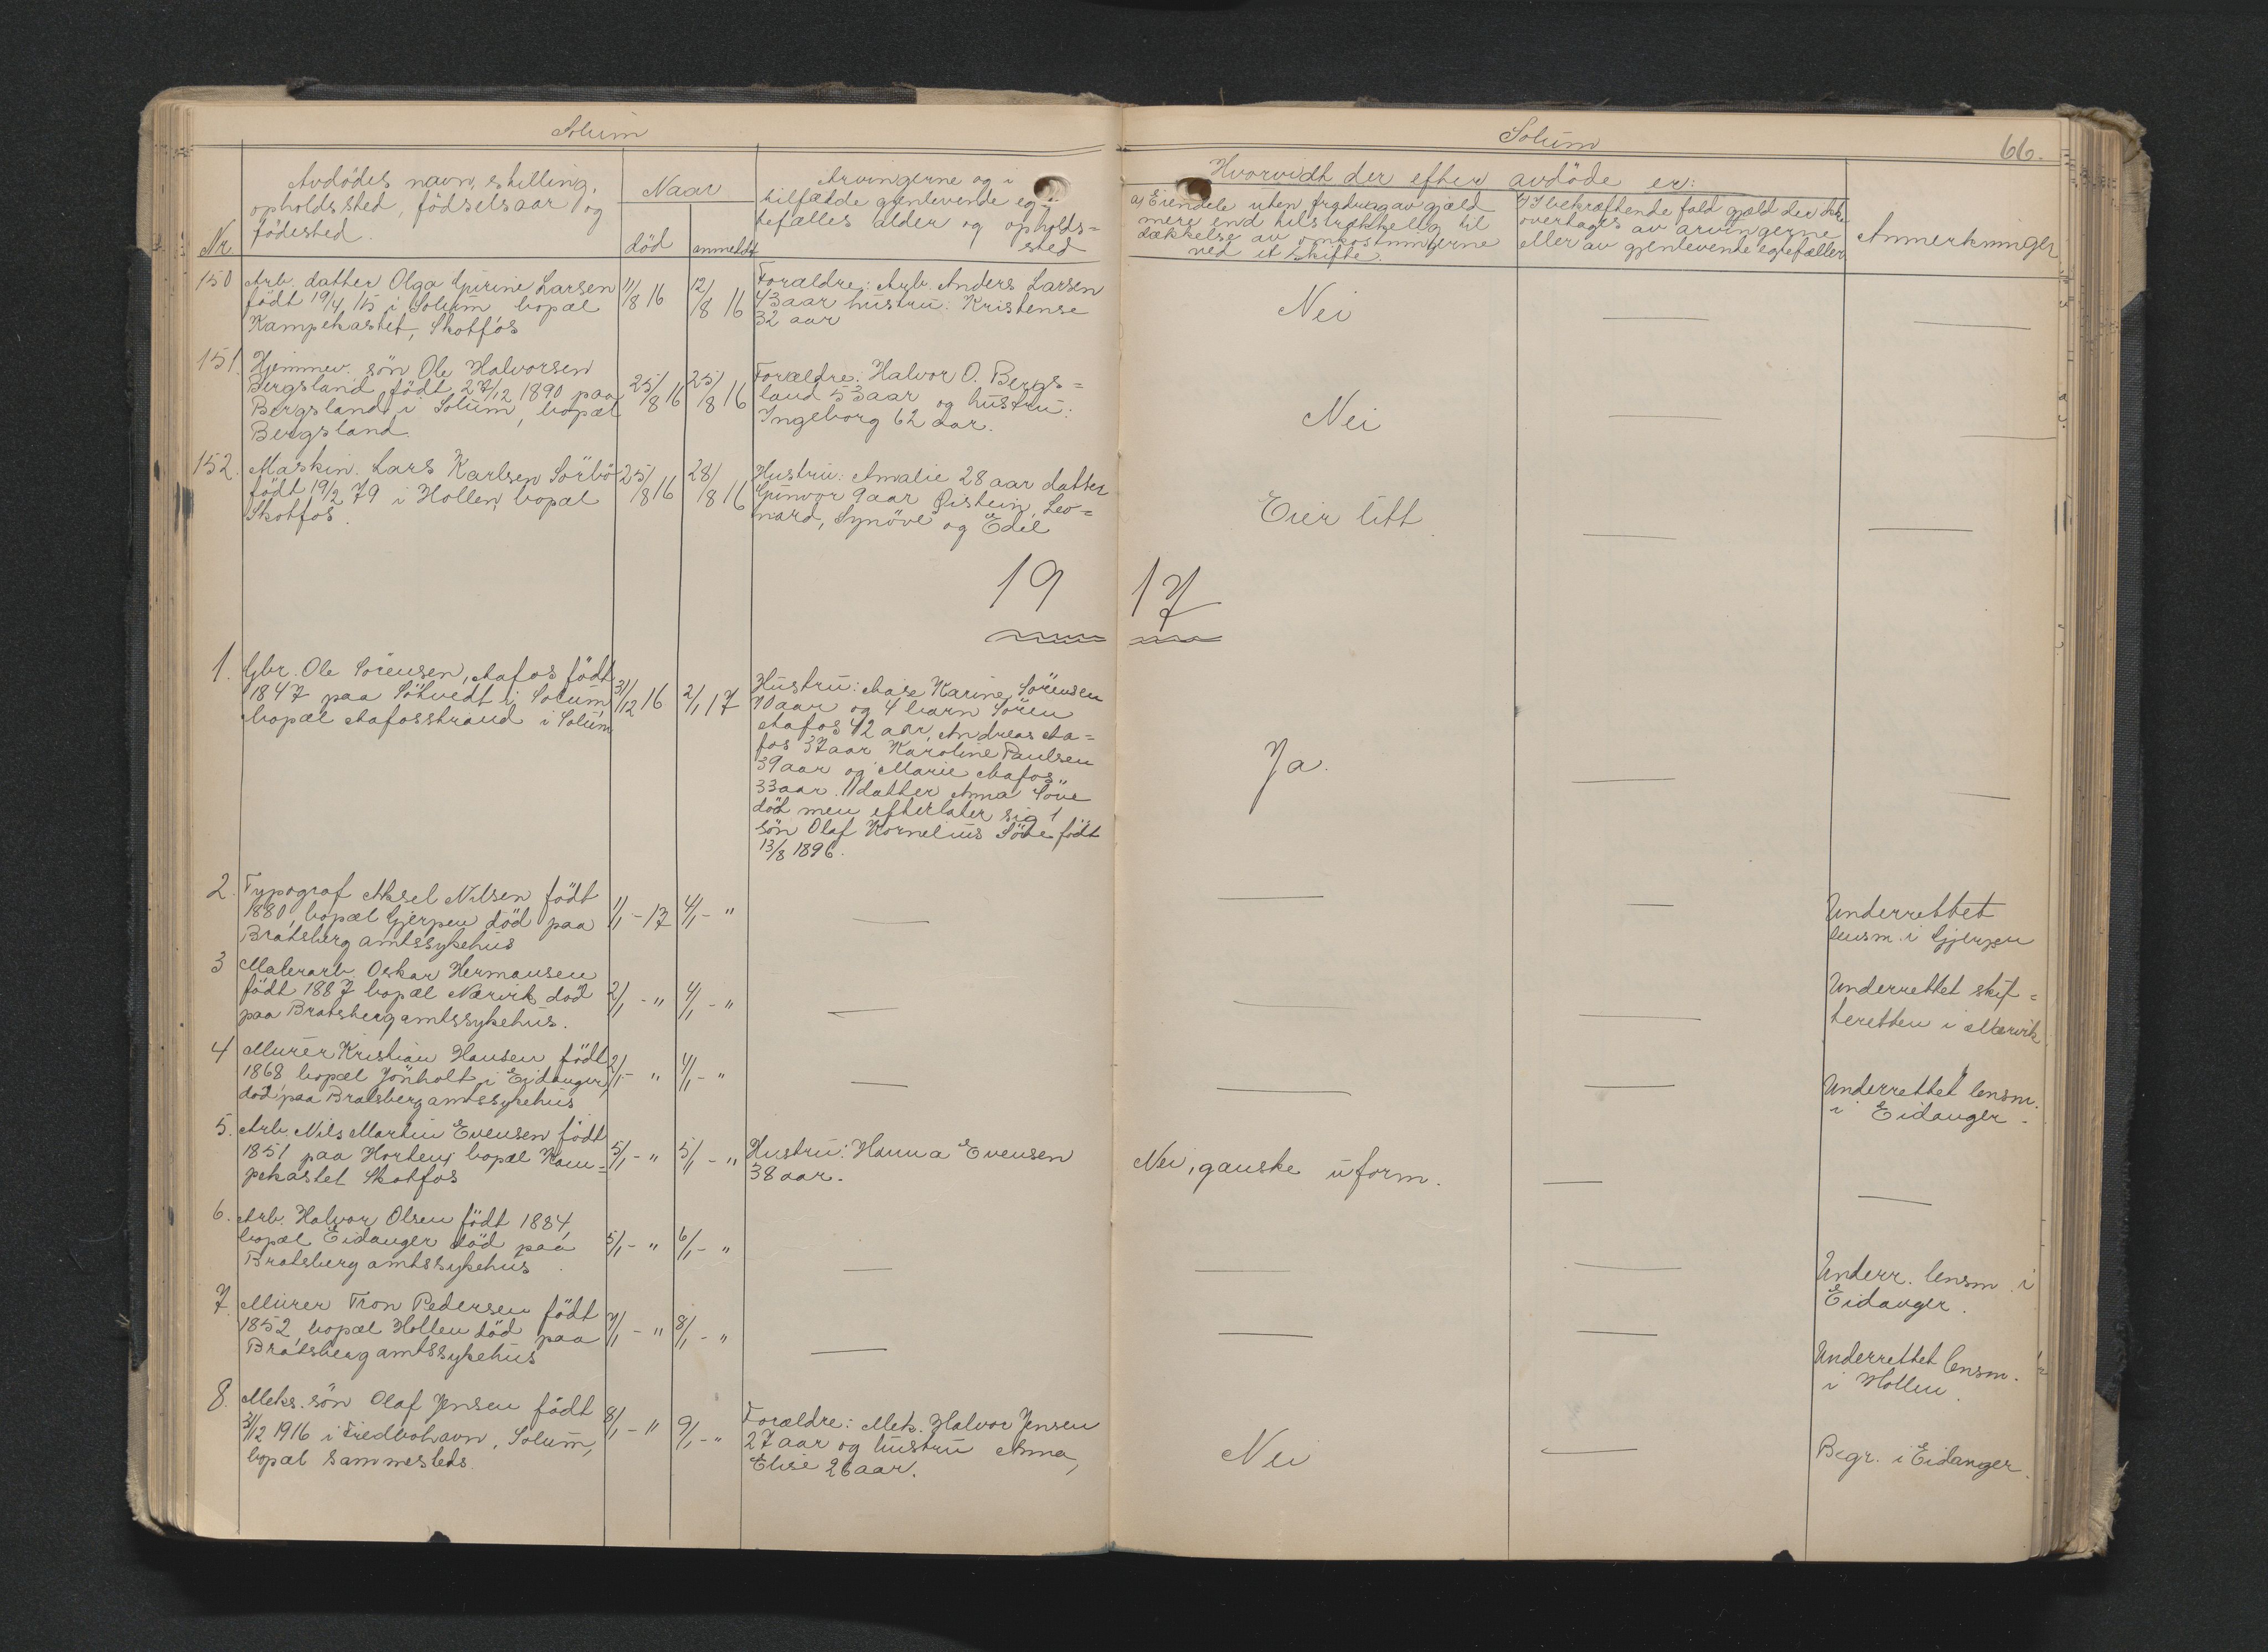 Solum
Nr.
Avdödes navn, stilling,
opholdssted, födselsaar og
födested.
Naar
död
anmeldt
Arvingerne og i
tilfælde gjenlevende eg=
tefælles alder og opholds=
sted
150
Arb. datter Olga Gurine Larsen
födt 19/4 15 i Solum bopæl
Kampekastet, Skotfos
11/8 16
12/8 16
Forældre: Arb. Anders Larsen
43 aar hustru: Kristense
32 aar
151.
Hjemmev. sön Ole Halvorsen
Bergsland, födt 27/12 1890 paa
Bergsland i Solum, bopæl
Bergsland.
25/8 16
25/8 16
Forældre: Halvor O. Bergs=
land 53 aar og hustru:
Ingeborg 62 aar.
152.
Maskin. Lars Karlsen Sörbö
födt 19/2 79 i Hollen, bopæl
Skotfos.
25/8 16
28/8 16
Hustru: Amalie 28 aar datter
Gunvor 9 aar Øistein, Leo=
nard, Synöve og Edel
19
1.
Gbr. Ole Sörensen, Aafos födt
1847 paa Sötvedt i Solum
bopæl Aafosstrand i Solum
31/12 16
2/1 17
Hustru: Aase Karine Sörensen
70 aar og 4 barn Sören
Aafos 42 aar, Andreas Aa=
fos 37 aar Karoline Paulsen
39 aar og Marie Aafos
33 aar. 1 datter Anna Töve
död men efterlater sig 1
sön Olaf Kornelius Töve födt
13/8 1896.
2.
Typograf Aksel Nilsen födt
1880, bopæl Gjerpen död paa
Bratsberg amtssykehus
1/1 - 17
4/1 - "
3
Malerarb. Oskar Hermansen
födt 1887 bopæl Narvik död
paa Bratsberg amtssykehus.
2/1 - "
4/1 - "
4
Murer Kristian Hansen födt
1868 bopæl Jönholt i Eidanger,
död paa Bratsberg amtssykehus
2/1 - "
4/1 - "
5.
Arb. Nils Martin Evensen födt
1851 paa Horten, bopæl Kam=
pekastet Skotfos
5/1 - "
5/1 - "
Hustru: Hanna Evensen
38 aar.
6.
Arb. Halvor Olsen födt 1884,
bopæl Eidanger död paa
Bratsberg amtssykehus.
5/1 - "
6/1 - "
7
Murer Tron Pedersen födt
1852, bopæl Hollen död paa
Bratsberg amtssykehus
7/1 - "
8/1 - "
8.
Meks. sön Olaf Jensen födt
31/12 1916 i Fredbohavn, Solum,
bopæl sammesteds.
8/1 - "
9/1 - "
Forældre: Mek. Halvor Jensen
27 aar og hustru Anna,
Elise 26 aar.
Solum
66.
Hvorvidt der efter avdöde er:
a) Eiendele uten fradrag av gjæld
mere end tilstrækkelig til
dækkelse av omkostningerne
ved et skifte.
b) I bekræftende fald gjæld der ikke
overtages av arvingerne
eller av gjenlevende egtefæller
Anmerkninger
Nei
Nei
Eier litt
17
Ja.
Underrettet
lensm. i Gjerpen
Underrettet skif=
teretten i Narvik
Underrettet lensm.
i Eidanger.
Nei, ganske uform.
Underr. lensm. i
Eidanger.
Underrettet lensm.
i Hollen.
Nei
Begr. i Eidanger.